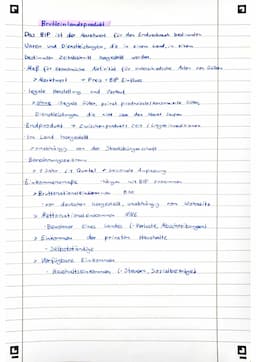 Bruttoinlandsprodukt
Das BIP ist der Marktwert für den Endverbrauch bestimmten
Waren und Dienstleistungen, die in einem Land, in einem
bestimmten Zeitabschnitt hergestellt werden.
Maß für ökonomische Aktivität für
> Marktwert → Preis = BIP Einfluss
legale Herstellung und Verkauf
> ohne illegale Güter, privat produzierte Güter,
Dienstleistungen die nicht über den Markt laufen
Endprodukt →
Im Land hergestellt
> unabhängig von der Staatsbürgerschaft
Berechnungszeitraum
> 1 Jahr / 1 Quartal + saisonale Anpassung
Einkommensmaße hängen mit BIP zusammen
> Bruttonationaleinkommen BNE
- von hergestellt, unabhängig vom Wohnsitz
> Nettonationaleinkommen NNE
- Bewohner eines Landes (- Abschreibungen)
> Einkommen der privaten Haushalte
- Selbstständige
> Verfügbares Einkommen
- Haushaltseinkommen (- Steuern, Sozialbeiträge)